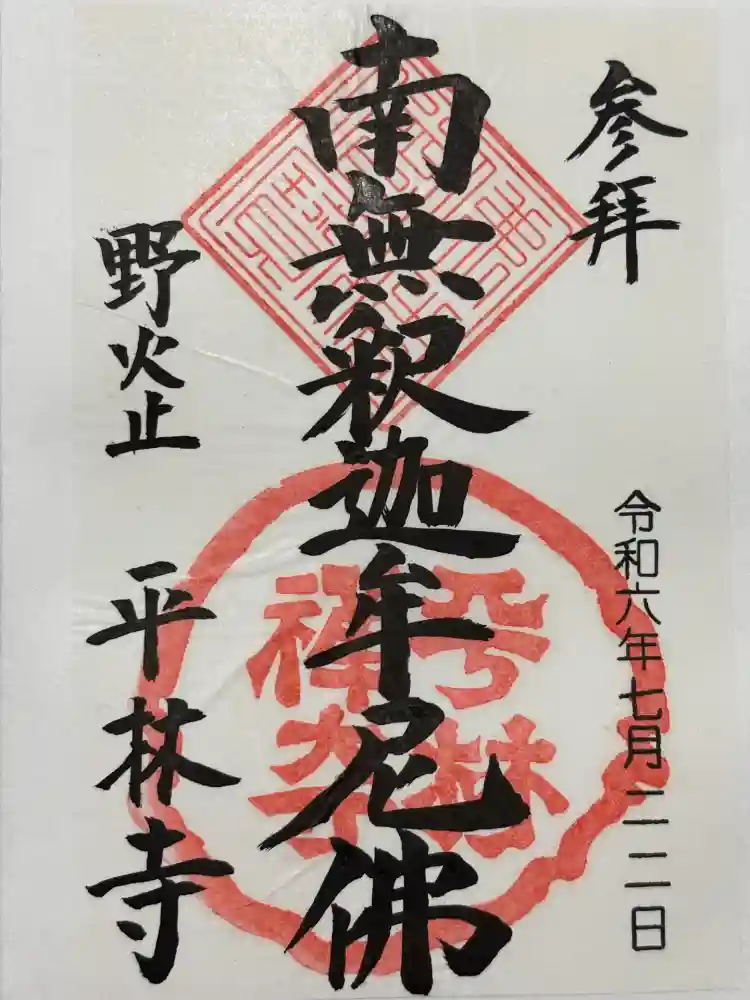 参拝
令和六年七月二二日
南無釈迦牟尼佛
平林
禅寺
野火止
平林寺